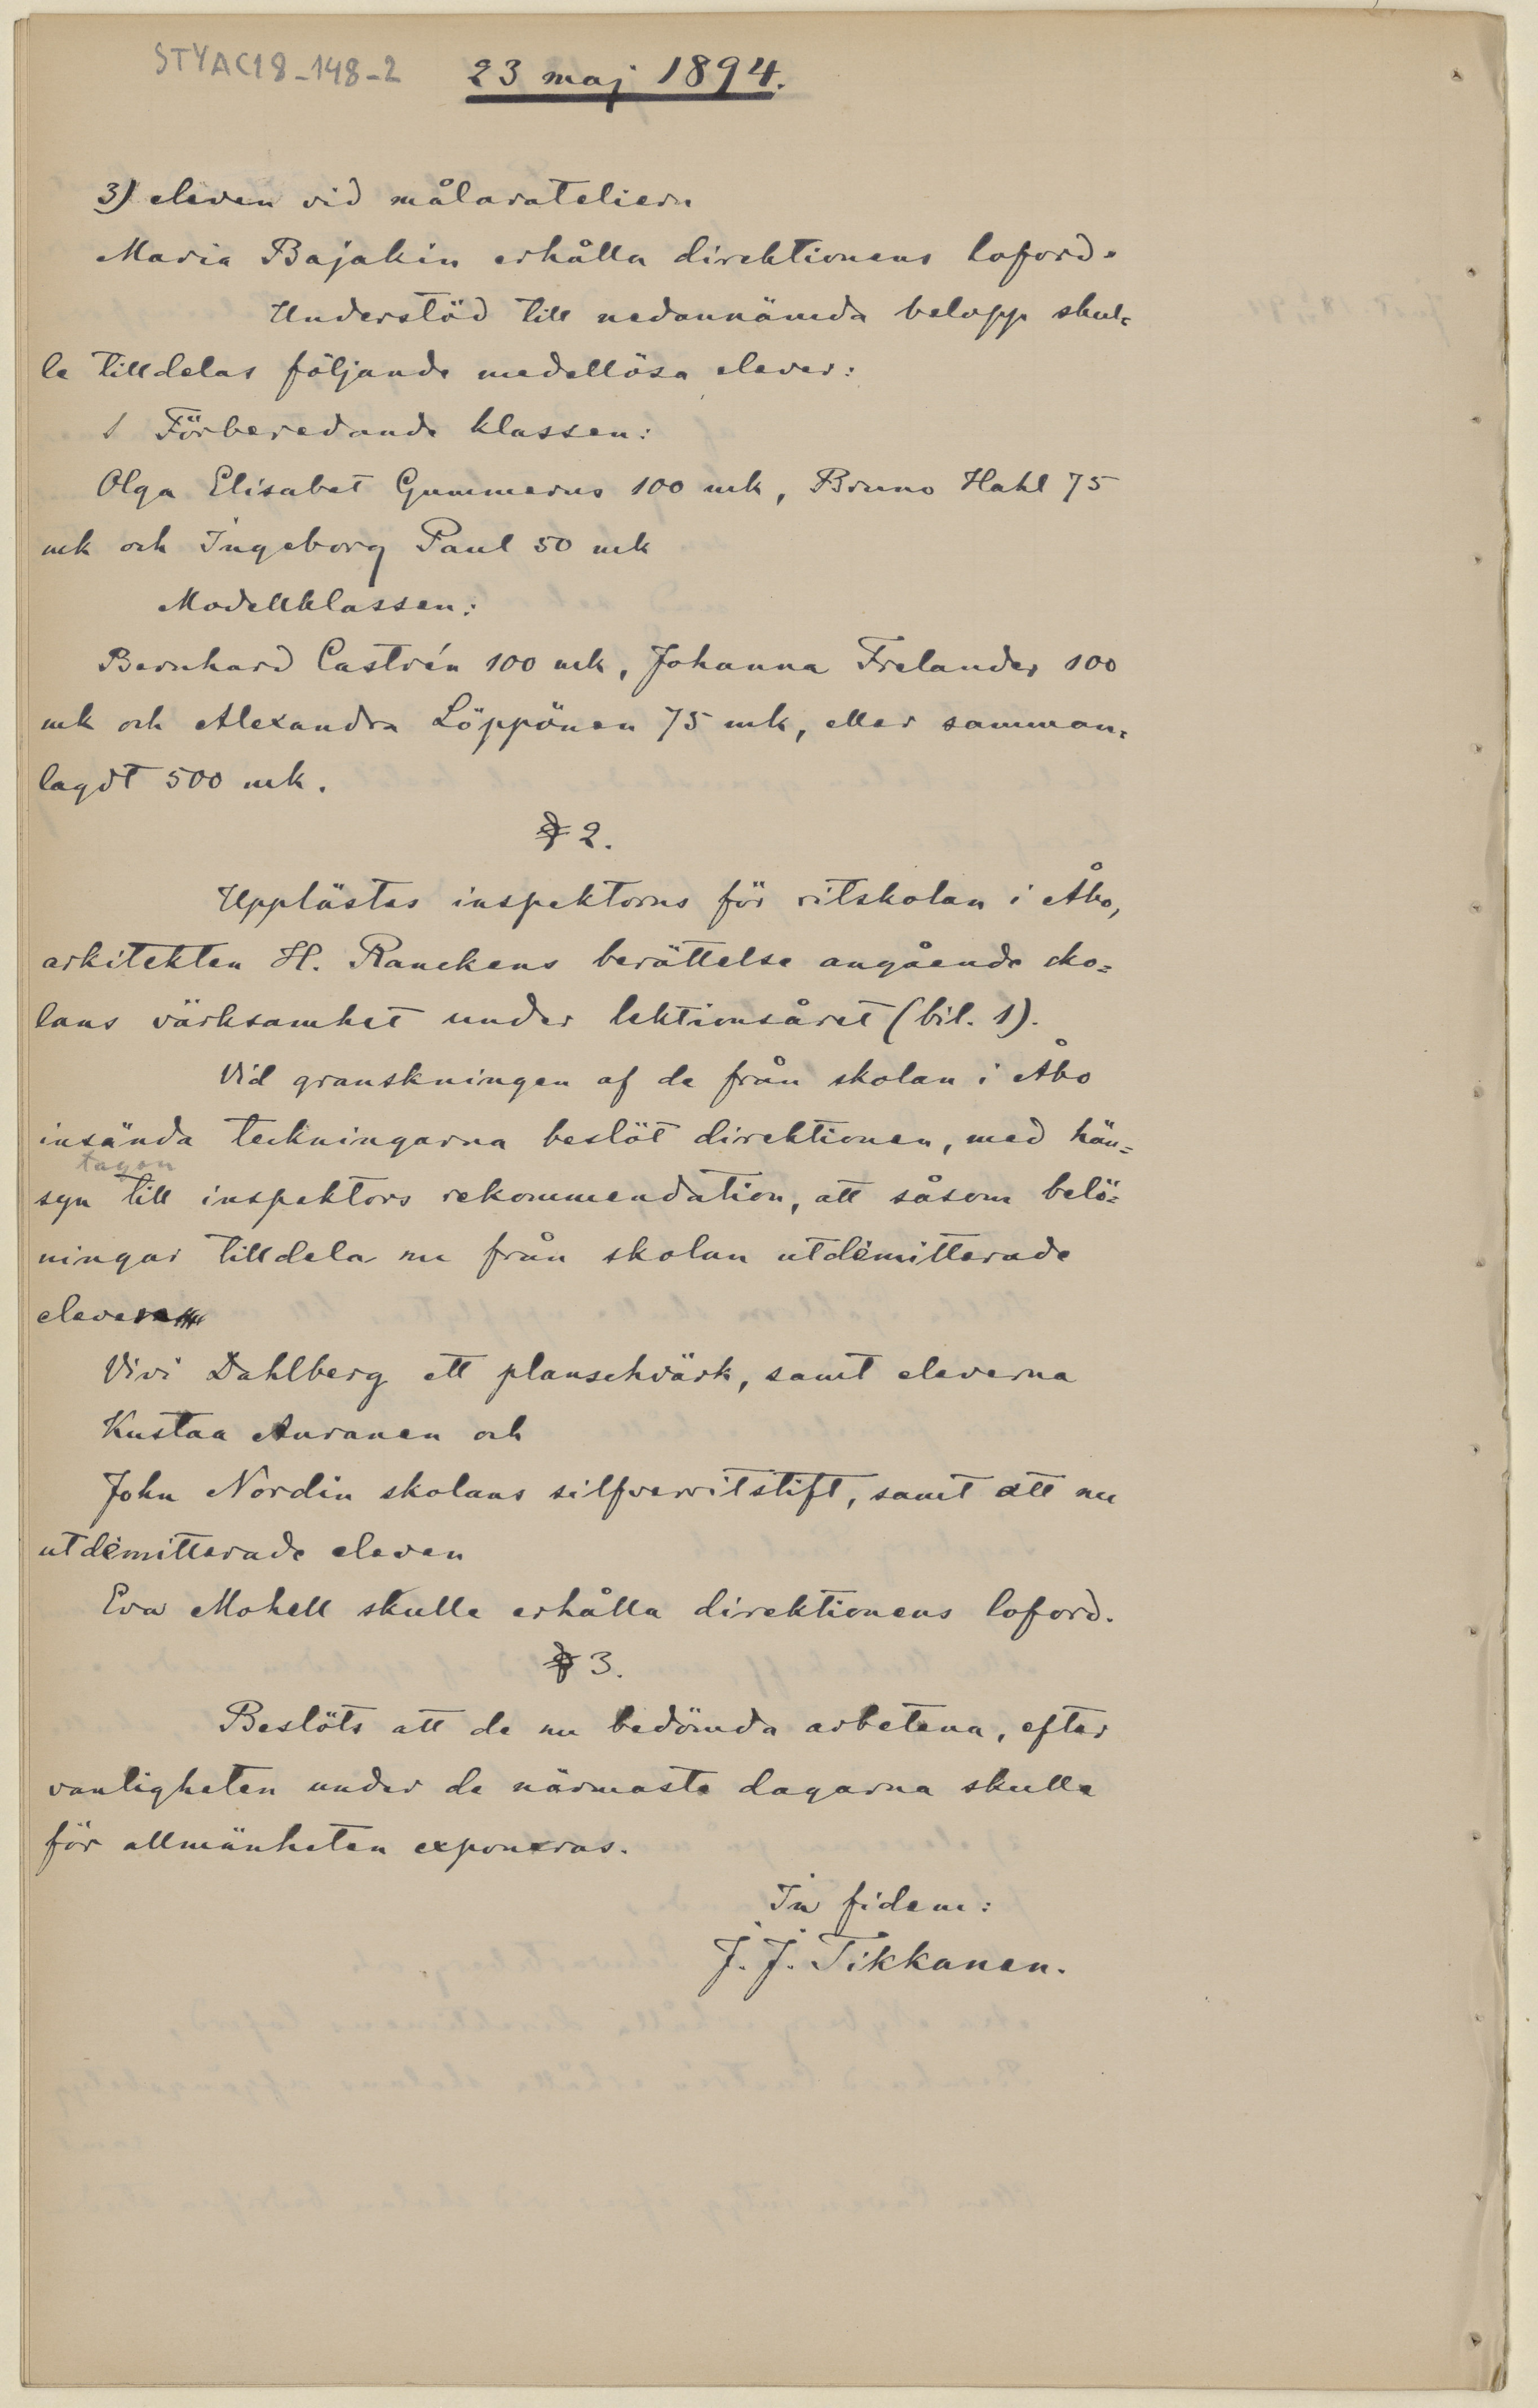 STYAC18-148-2
23 maj 1894.
3) eleven vid målarateliern
Maria Bajakin erhålla direktionens loford.
Understöd till nedannämda belopp skul=
le tilldelas följande medellösa elever:
I Förberedande klassen:
Olga Elisabet Gummerus 100 mk, Bruno Hahl 75
mk och Ingeborg Paul 50 mk
Modellklassen:
Bernhard Castrén 100 mk, Johanna Frelander 100
mk och Alexandra Löppönen 75 mk, eller samman=
lagdt 500 mk.
§ 2.
Upplästes inspektorns för ritskolan i Åbo,
arkitekten H. Ranckens berättelse angående sko=
lans värksamhet under lektionsåret (bil. 1).
Vid granskningen af de från skolan i Åbo
insända teckningarna beslöt direktionen, med hän=
tagen
syn till inspektors rekommendation, att såsom belö=
ningar tilldela nu från skolan utdimitterade
eleven
Vivi Dahlberg ett planschvärk, samt eleverna
Kustaa Auranen och
John Nordin skolans silfverritstift, samt att nu
utdimitterade eleven
Eva Mohell skulle erhålla direktionens loford.
§ 3.
Beslöts att de nu bedömda arbetena, efter
vanligheten under de närmaste dagarna skulle
för allmänheten exponeras.
In fidem:
J. J. Tikkanen.